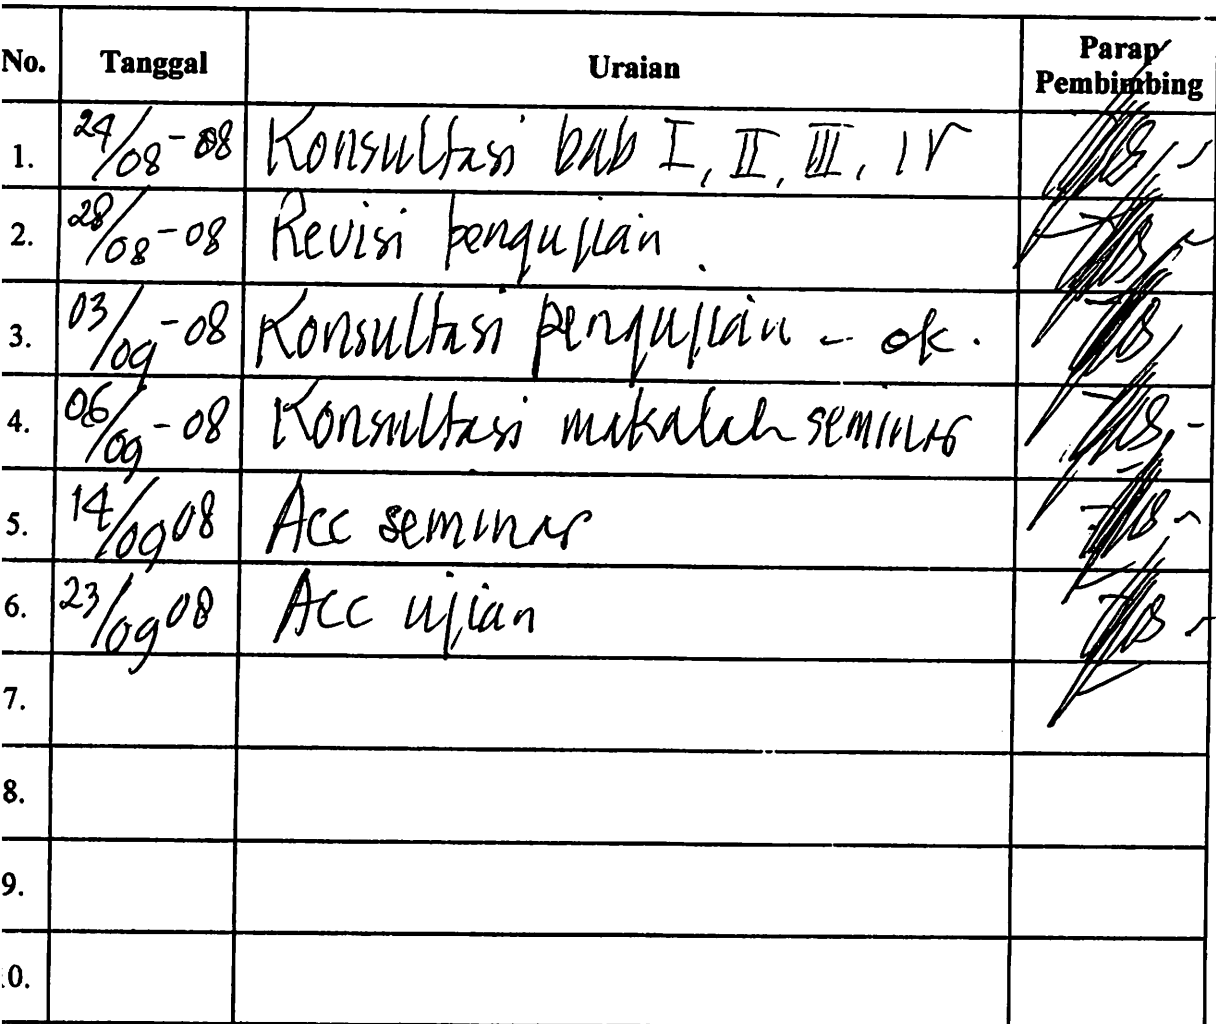 No. Tanggal Uraian Parap Pembimbing
1. 24/08-08 Konsultasi bab I, II, III, IV
2. 28/08-08 Revisi pengujian.
3. 03/09-08 Konsultasi pengujian - ok.
4. 06/09-08 Konsultasi makalah seminar
5. 14/09 08 Acc seminar
6. 23/09 08 Acc ujian
7.
8.
9.
0.